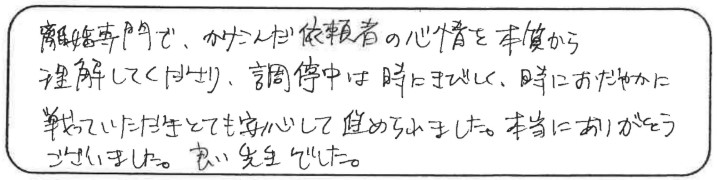 離婚専門で、かけこんだ依頼者の心情を本質から
理解してくださり、調停中は時にきびしく、時におだやかに
戦っていただきとても安心して進められました。本当にありがとう
ございました。良い先生でした。